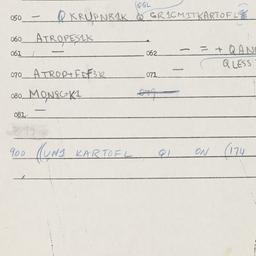 GGL
050 — QKRUPNB1K Q GR1CM1TKARTOFL
060 ATROPES1K
061 — 062 — = + QAN
QLESS
070 ATROP+FEF3K 071 —
080 MONSC+K1
081 —
900 UN1 KARTOFL Q1 ON (174